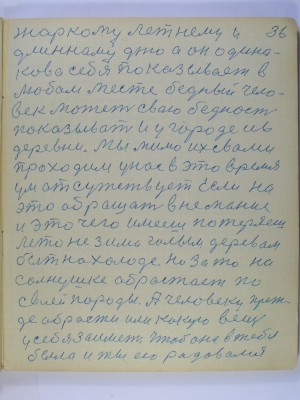 жаркому летнему и 36
длинному дню а он одина-
кова себя показывает в
любом месте бедный чело-
век может сваю бедност
показыват и у городе и в
деревни. Мы мимо их с вами
проходим у нас в это время
ум отсутствует Если на
это обращат внемание
и это чего имееш потеряеш
лето не зима голым деревам
быт на холоде. Но за то на
солнушке обрастает по
своей породы. А человеку преж-
де обрасти или какую вещ
у себя заимет. Чтобы она в тебя
была и ты ею радовался